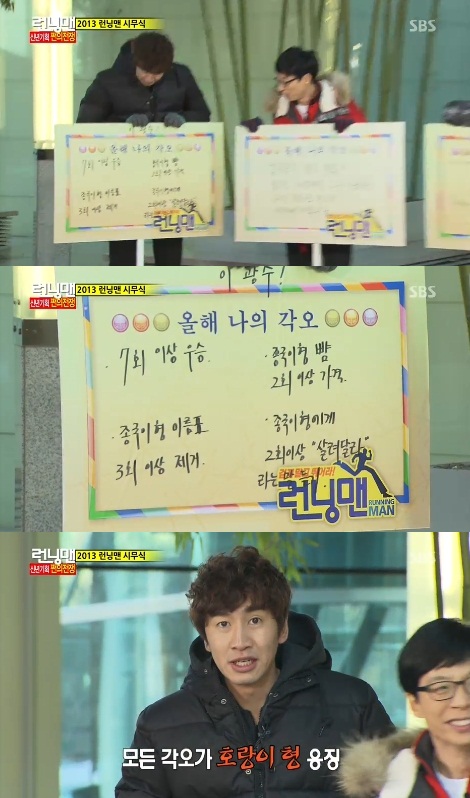 런닝맨
신년기획 편의전쟁
2013 런닝맨 시무식
SBS
이 광수!
올해 나의 각오
7회 이상 우승
종국이형 뺨
2회 이상 가격
종국이형 이름표
3회 이상 제거
종국이형에게
올해 나의 각오
런닝맨
런닝맨
신년기획 편의전쟁
2013 런닝맨 시무식
SBS
이 광수!
올해 나의 각오
· 7회 이상 우승.
· 종국이형 뺨
2회 이상 가격.
· 종국이형 이름표
3회 이상 제거.
· 종국이형에게
2회이상 "살려달라"
라는
런닝맨
RUNNING MAN
런닝맨
신년기획 편의전쟁
2013 런닝맨 시무식
SBS
모든 각오가 호랑이 형 응징